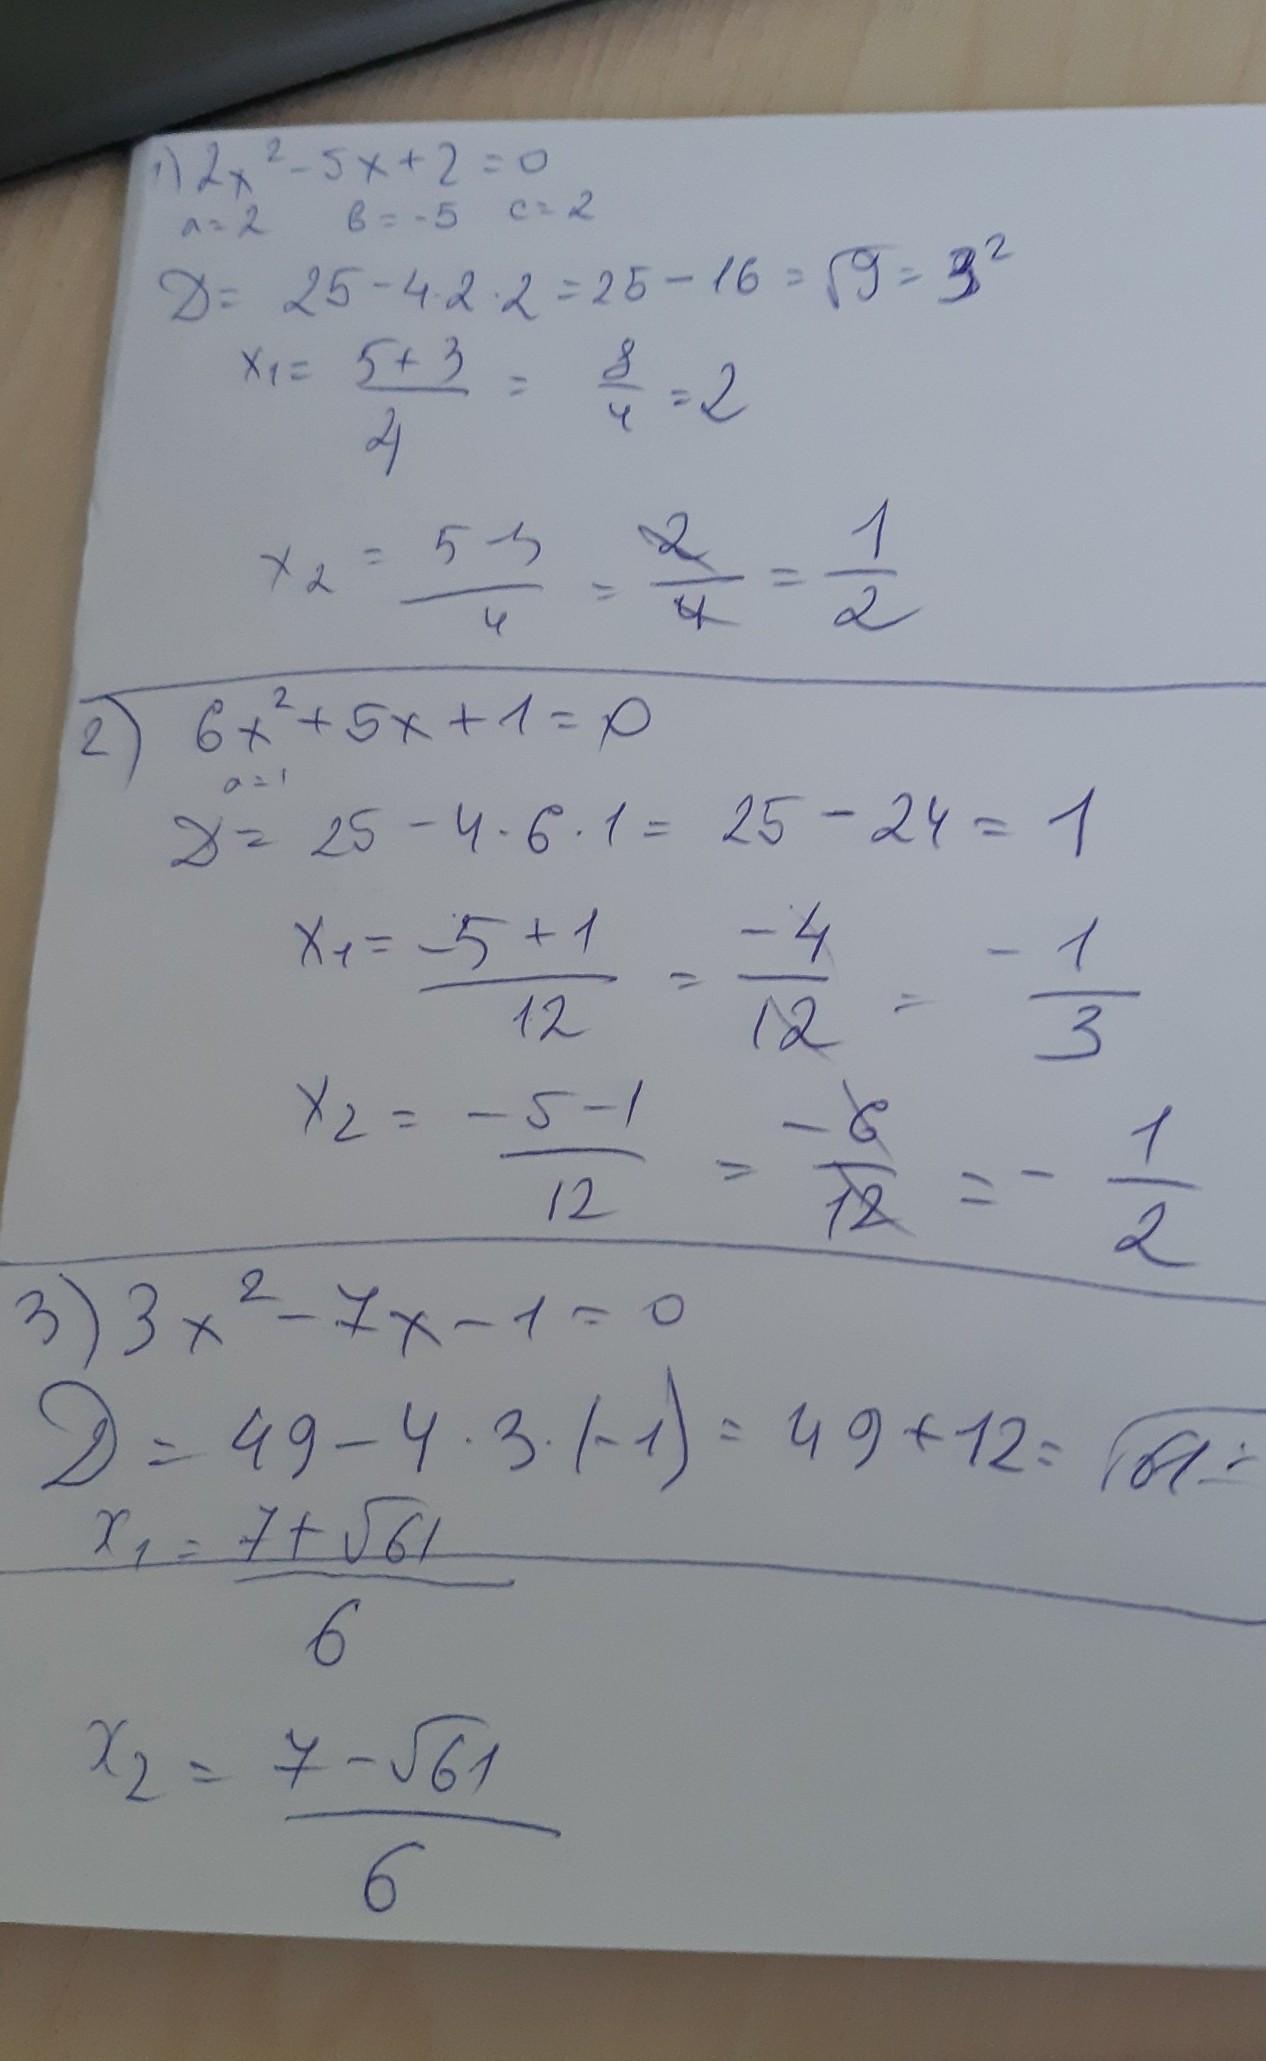 1) 2x² - 5x + 2 = 0
a = 2 в = -5 c = 2
D = 25 - 4·2·2 = 25 - 16 = √9 = 3²
x₁ = (5+3)/4 = 8/4 = 2
x₂ = (5-3)/4 = 2/4 = 1/2
2) 6x² + 5x + 1 = 0
a = 1
D = 25 - 4·6·1 = 25 - 24 = 1
x₁ = (-5+1)/12 = -4/12 = -1/3
x₂ = (-5-1)/12 = -6/12 = -1/2
3) 3x² - 7x - 1 = 0
D = 49 - 4·3·(-1) = 49 + 12 = √61 =
x₁ = (7+√61)/6
x₂ = (7-√61)/6